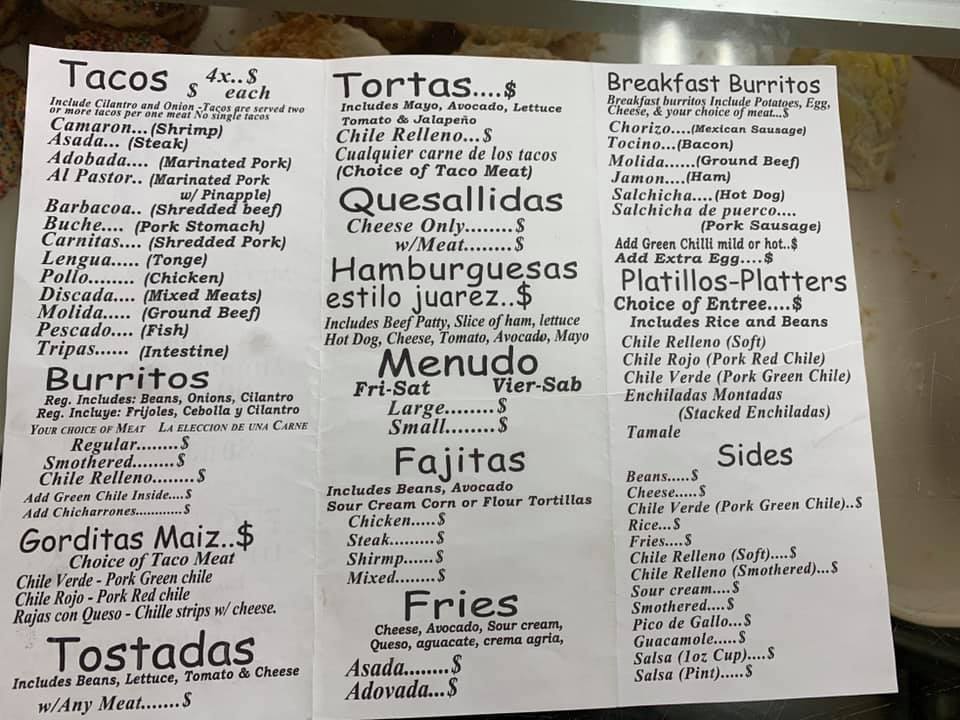 Tacos $ 4x..$ each
Include Cilantro and Onion -Tacos are served two
or more tacos per one meat No single tacos
Camaron...(Shrimp)
Asada... (Steak)
Adobada.... (Marinated Pork)
Al Pastor.. (Marinated Pork
w/ Pinapple)
Barbacoa.. (Shredded beef)
Buche.... (Pork Stomach)
Carnitas.... (Shredded Pork)
Lengua..... (Tonge)
Pollo........ (Chicken)
Discada.... (Mixed Meats)
Molida..... (Ground Beef)
Pescado.... (Fish)
Tripas...... (Intestine)
Burritos
Reg. Includes: Beans, Onions, Cilantro
Reg. Incluye: Frijoles, Cebolla y Cilantro
YOUR CHOICE OF MEAT LA ELECCION DE UNA CARNE
Regular........$
Smothered........$
Chile Relleno........$
Add Green Chile Inside....$
Add Chicharrones............$
Gorditas Maiz..$
Choice of Taco Meat
Chile Verde - Pork Green chile
Chile Rojo - Pork Red chile
Rajas con Queso - Chille strips w/ cheese.
Tostadas
Includes Beans, Lettuce, Tomato & Cheese
w/Any Meat.......$
Tortas....$
Includes Mayo, Avocado, Lettuce
Tomato & Jalapeño
Chile Relleno...$
Cualquier carne de los tacos
(Choice of Taco Meat)
Quesallidas
Cheese Only........$
w/Meat........$
Hamburguesas
estilo juarez..$
Includes Beef Patty, Slice of ham, lettuce
Hot Dog, Cheese, Tomato, Avocado, Mayo
Menudo
Fri-Sat Vier-Sab
Large........$
Small........$
Fajitas
Includes Beans, Avocado
Sour Cream Corn or Flour Tortillas
Chicken.....$
Steak.........$
Shirmp......$
Mixed........$
Fries
Cheese, Avocado, Sour cream,
Queso, aguacate, crema agria,
Asada........$
Adovada...$
Breakfast Burritos
Breakfast burritos Include Potatoes, Egg,
Cheese, & your choice of meat...$
Chorizo....(Mexican Sausage)
Tocino...(Bacon)
Molida......(Ground Beef)
Jamon....(Ham)
Salchicha....(Hot Dog)
Salchicha de puerco....
(Pork Sausage)
Add Green Chilli mild or hot..$
Add Extra Egg....$
Platillos-Platters
Choice of Entree....$
Includes Rice and Beans
Chile Relleno (Soft)
Chile Rojo (Pork Red Chile)
Chile Verde (Pork Green Chile)
Enchiladas Montadas
(Stacked Enchiladas)
Tamale
Sides
Beans.....$
Cheese.....$
Chile Verde (Pork Green Chile)..$
Rice...$
Fries....$
Chile Relleno (Soft)....$
Chile Relleno (Smothered)...$
Sour cream....$
Smothered....$
Pico de Gallo...$
Guacamole.....$
Salsa (1oz Cup)....$
Salsa (Pint).....$